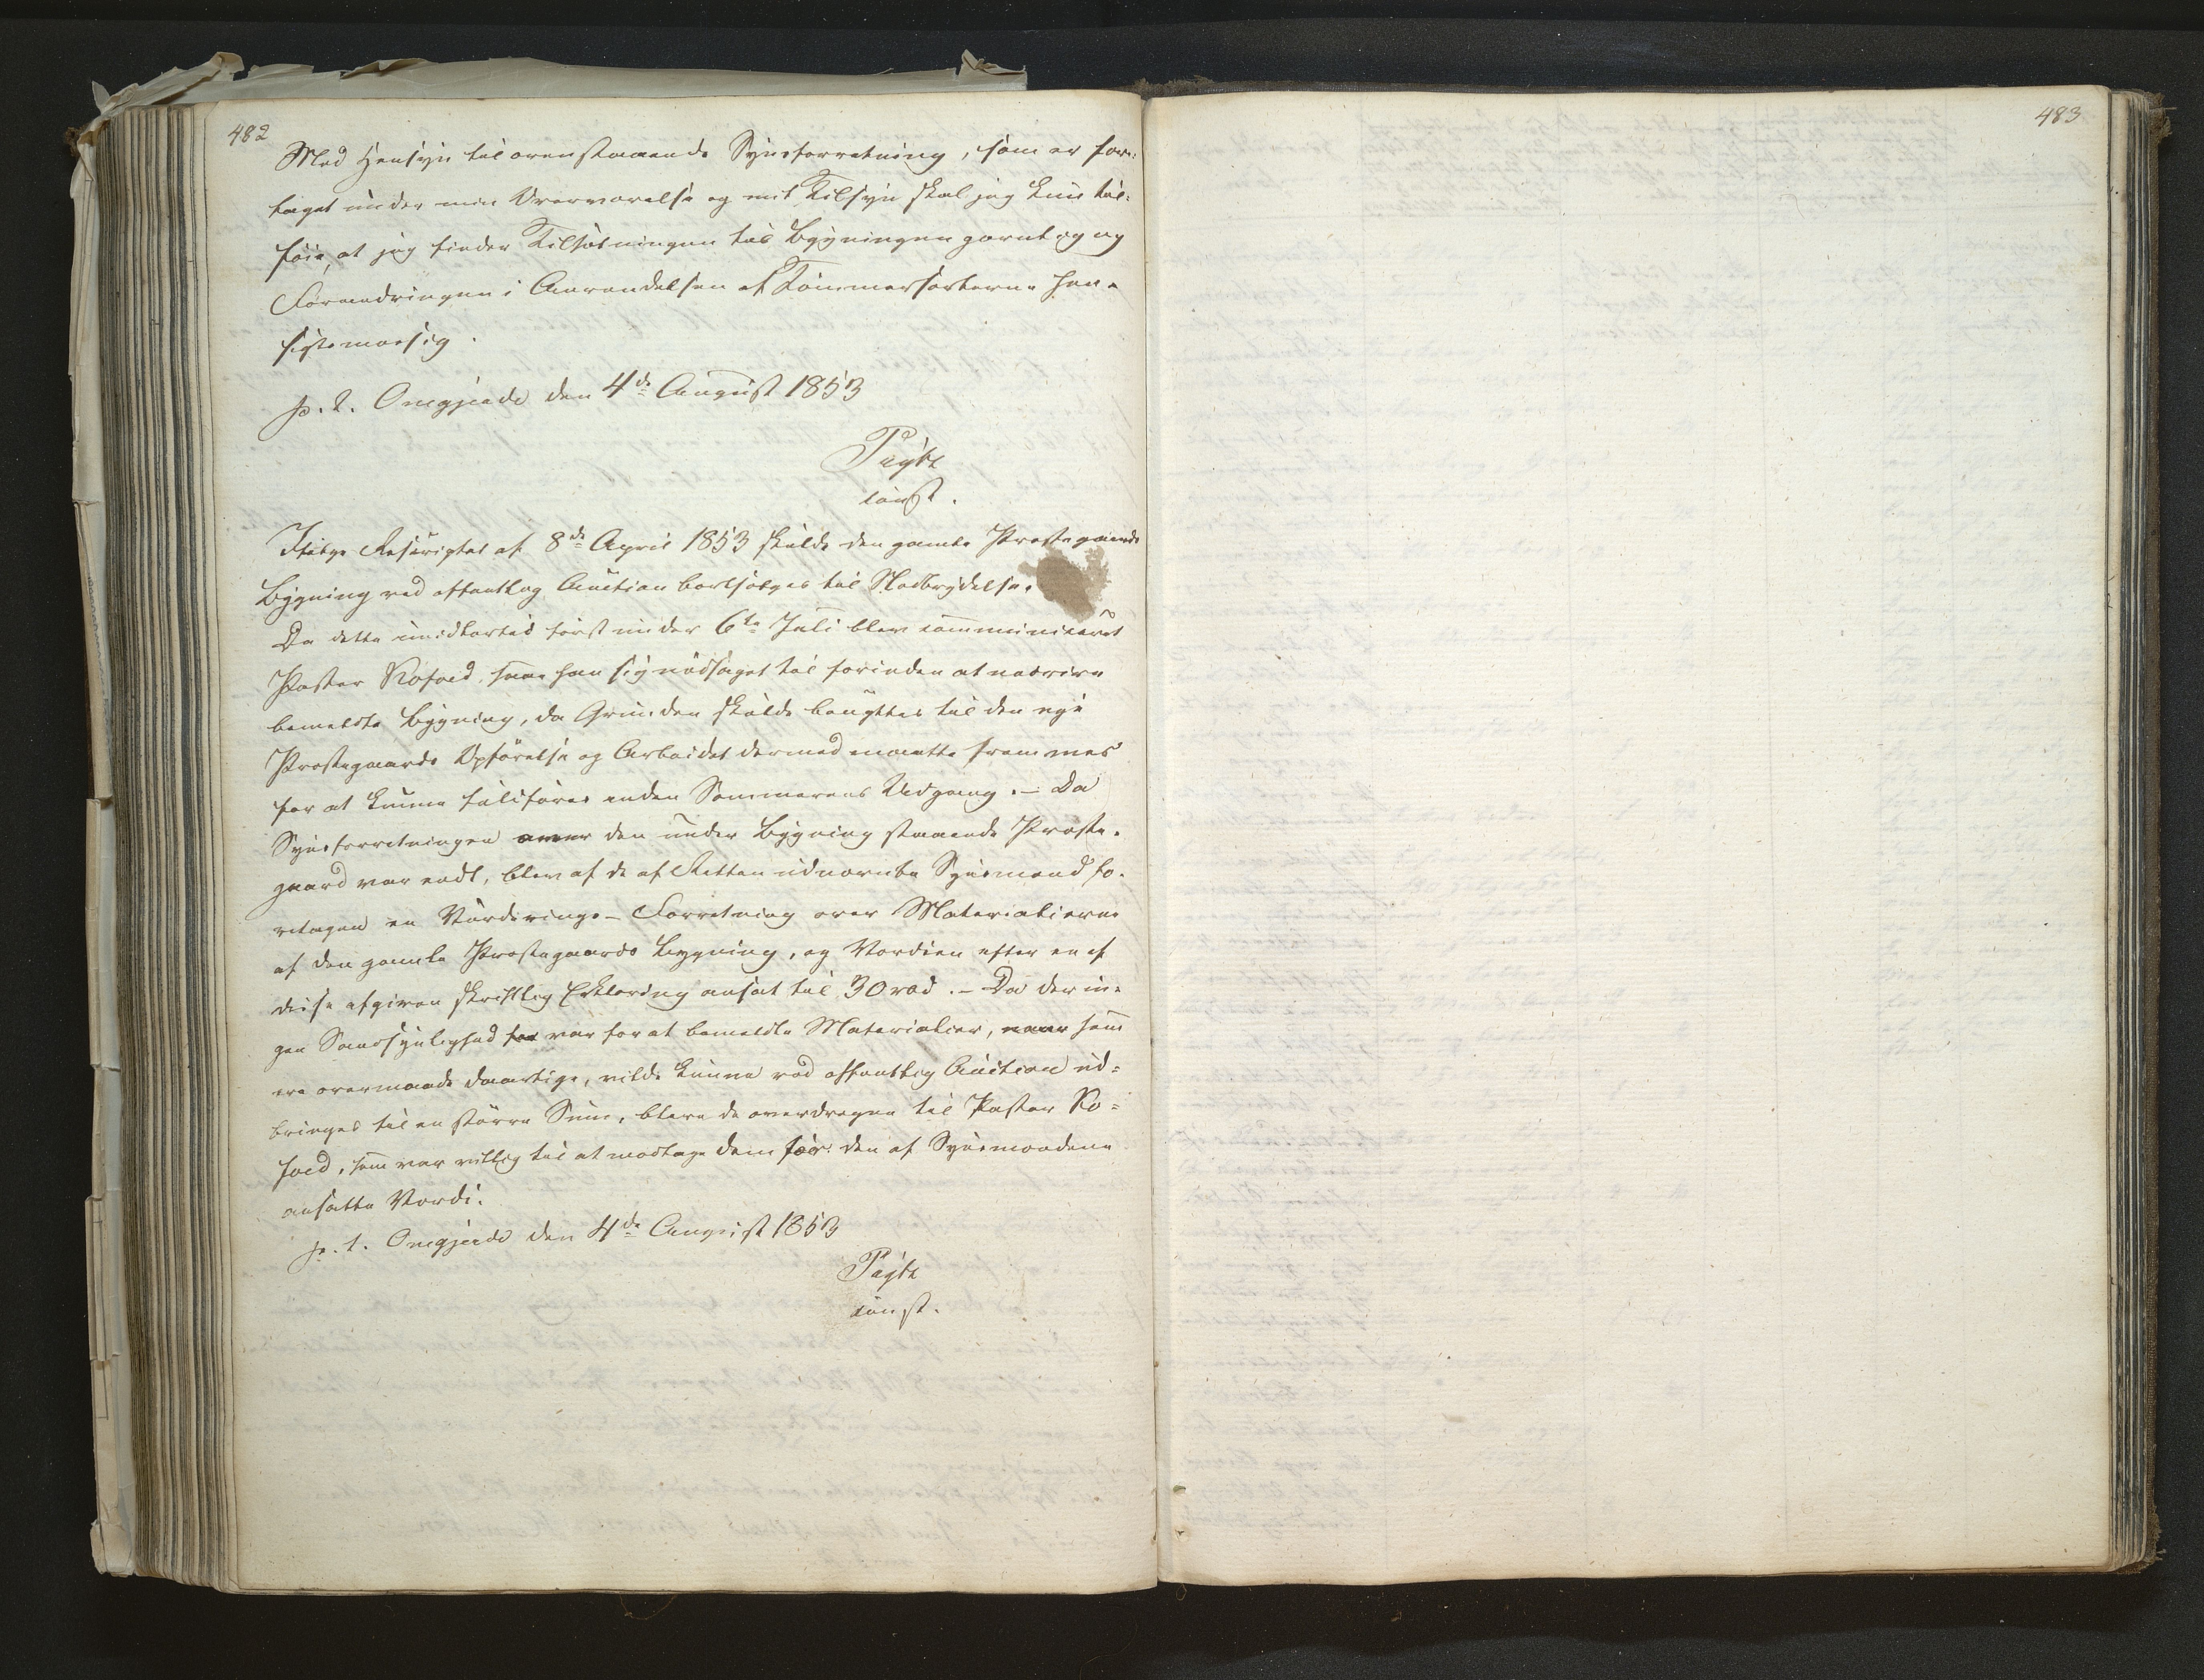 482
Med Hensyn til ovenstaaende Synsforretning, som er fore-
taget under min Overværelse og mit Tilsyn skal jeg kun til-
føie, at jeg finder Tilføiningen til Bygningen gavnlig og
Forandringen i Anvendelsen af Tømmersorterne hen-
sigtsmæssig.
p. t. den 4de August 1853
const.
Ifølge Rescriptet af 8de April 1853 skulde den gamle Præstegaards
Bygning ved offentlig Auction bortsælges til Nedbrydelse.
Da dette imidlertid først under 6te Juli blev communiceret
Pastor Kofoed, saae han sig nødsaget til forinden at nedrive
bemeldte Bygning, da Grunden skulde benyttes til den nye
Præstegaards Opførelse og Arbeidet dermed maatte fremmes
for at kunne fuldføres inden Sommerens Udgang. – Da
Synsforretningen over den under Bygning staaende Præste-
gaard var endt, blev af de af Retten udnævnte Synsmænd fo-
retagen en Vurderings-Forretning over Materialierne
af den gamle Præstegaards Bygning, og Værdien efter en af
disse afgiven skriftlig Erklæring ansat til 30 rbd. – Da der in-
gen Sandsynlighed var for at bemeldte Materialier, som
ere overmaade daarlige, vilde kunne ved offentlig Auction ud-
bringes til en større Sum, bleve de overdragne til Pastor Ko-
foed, som var villig til at modtage dem for den af Synsmændene
ansatte Værdi.
p. t. den 4de August 1853
const.
483